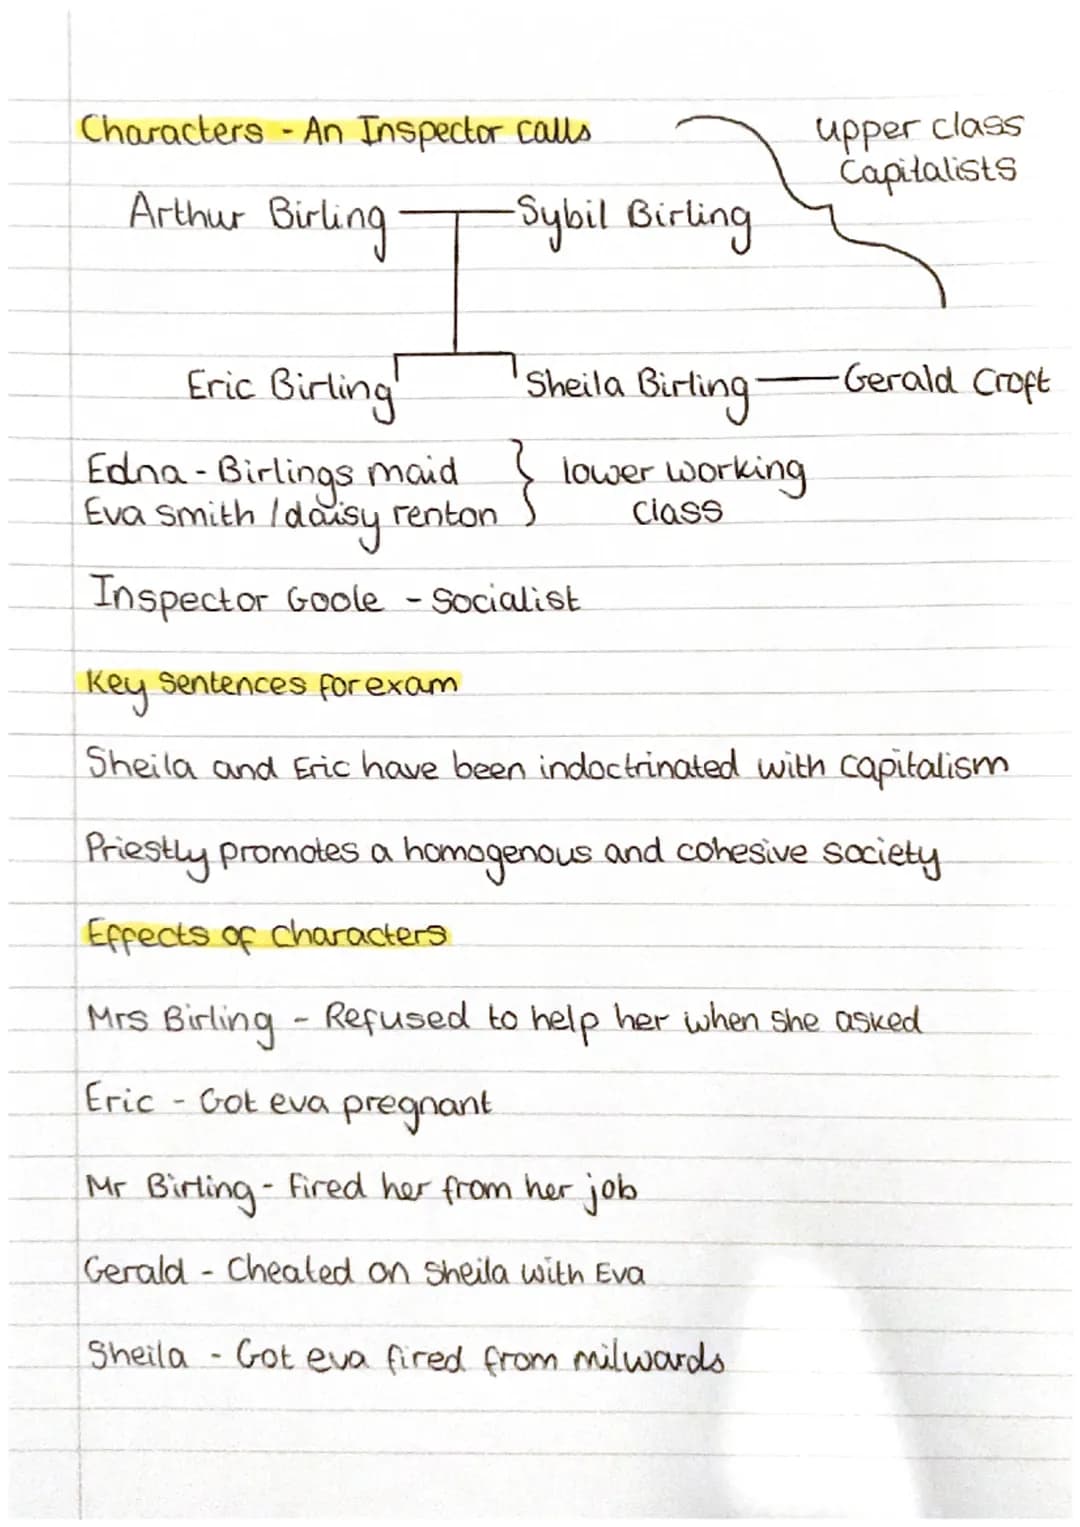 Characters - An Inspector calls
upper class
Capitalists
Arthur Birling
Sybil Birling
Eric Birling
Sheila Birling
Gerald Croft
Edna - Birlings maid
Eva smith / daisy renton
lower working
class
Inspector Goole - Socialist
Key sentences for exam
Sheila and Eric have been indoctrinated with capitalism
Priestly promotes a homogenous and cohesive society
Effects of characters
Mrs Birling - Refused to help her when she asked
Eric - Got eva pregnant
Mr Birling - fired her from her job
Gerald - Cheated on sheila with Eva
Sheila - Got eva fired from milwards